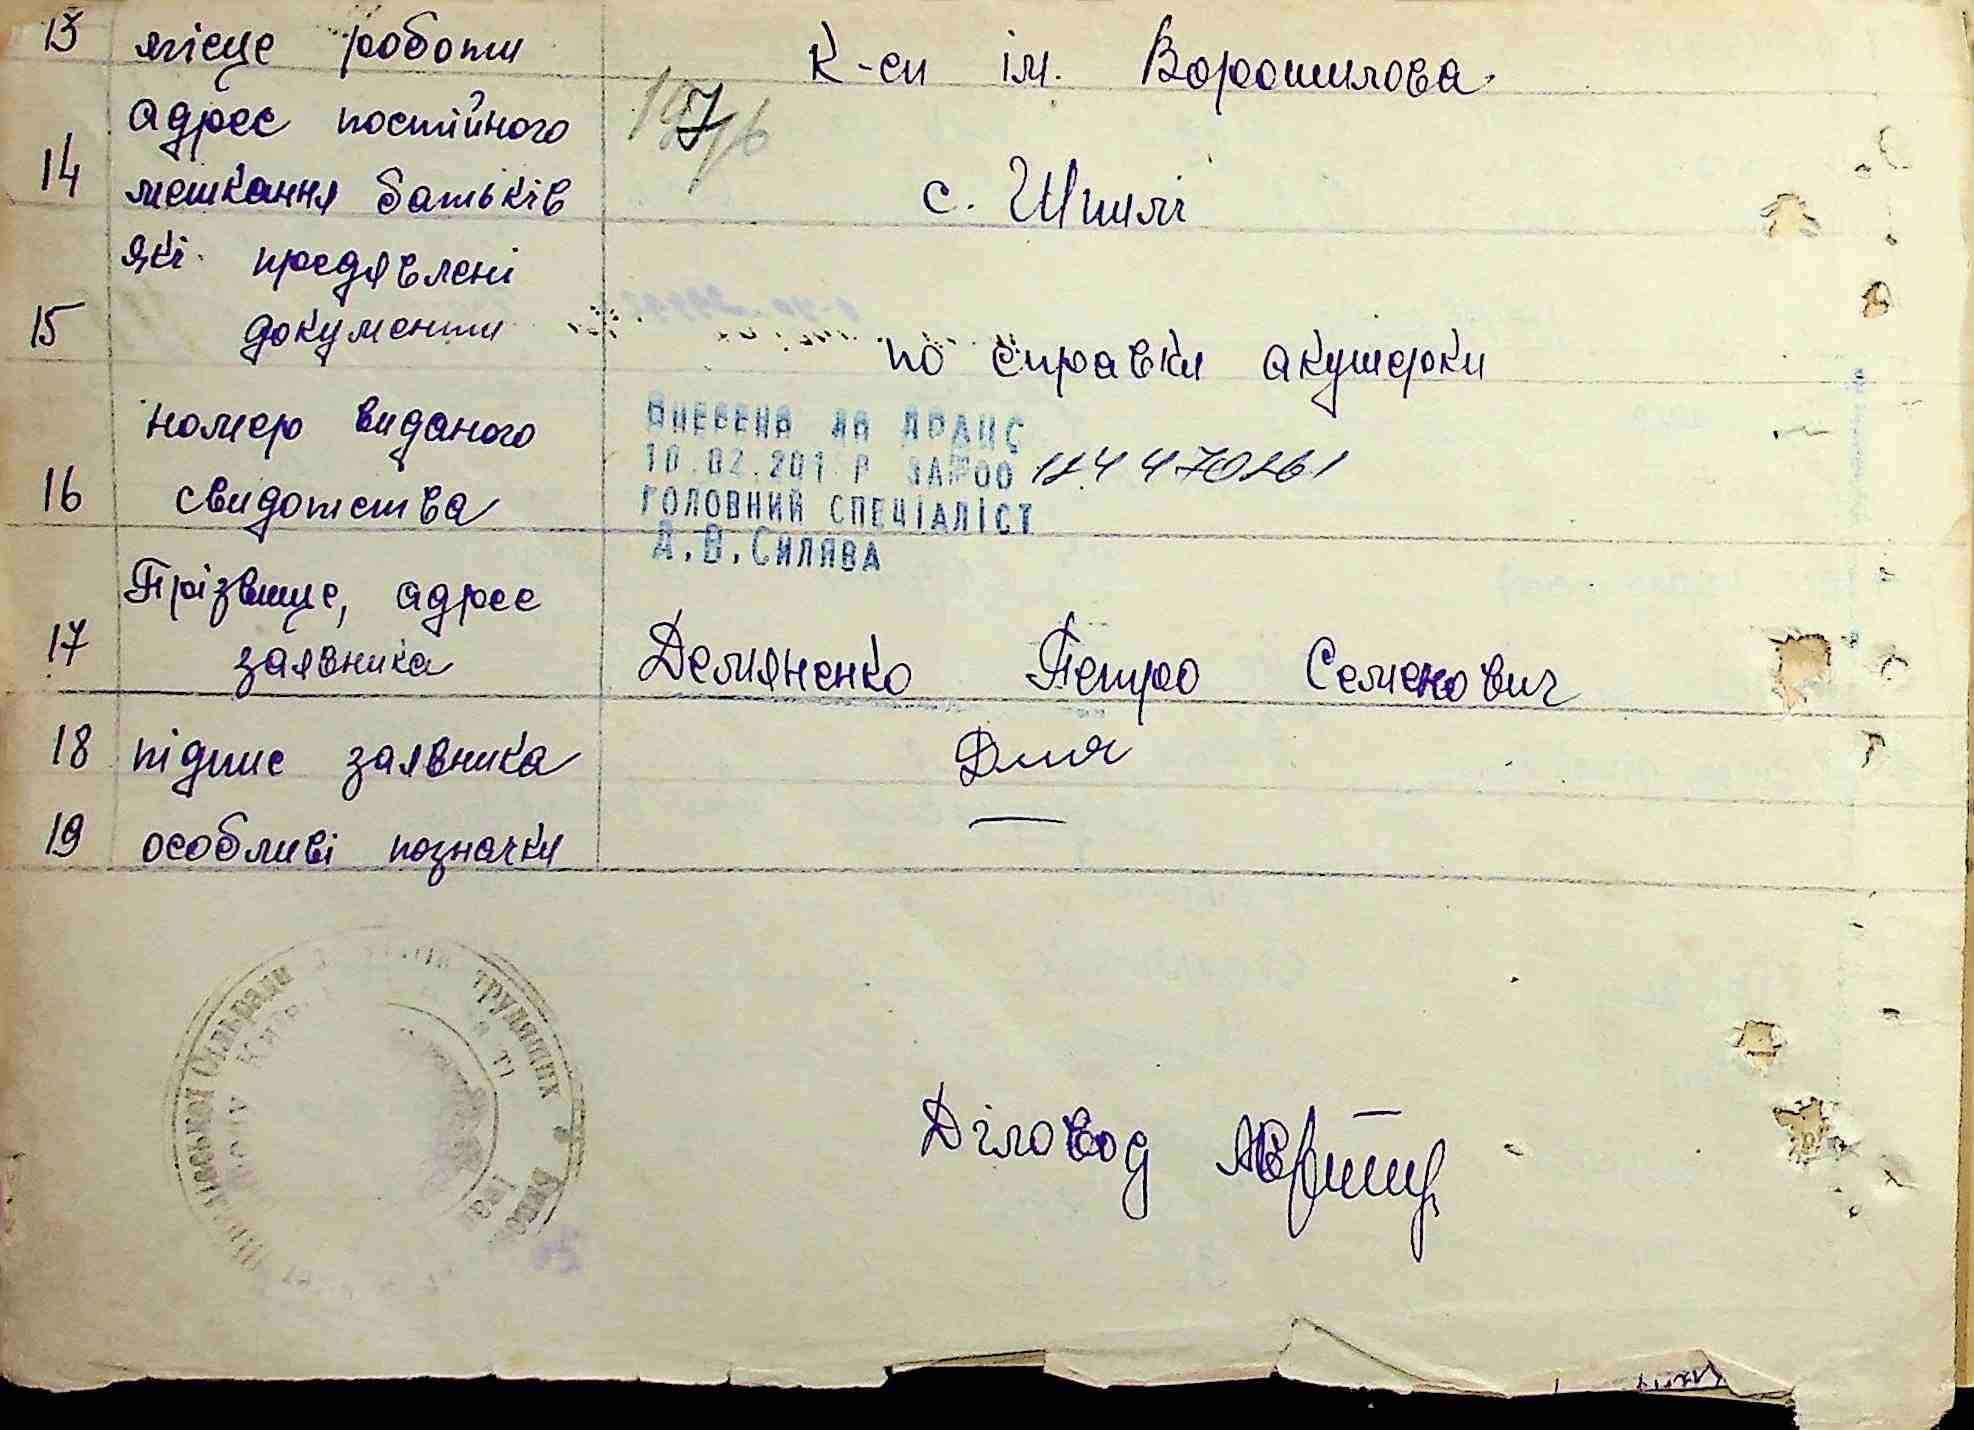 13 місце роботи К-си ім. Ворошилова
адрес постійного
14 мешкання батьків с. Шпилі
які предявлені
15 документи по справки акушерки
номер виданого
16 свидотства
ВНЕСЕНО ДО ДРАЦС
10.02.201 Р ЗА №00
ГОЛОВНИЙ СПЕЦІАЛІСТ
А.В.СИЛЯВА
Прізвище, адрес
17 заявника Демяненко Петро Семенович
18 підпис заявника Дмя
19 особливі позначки —
сільради трудящих
Діловод